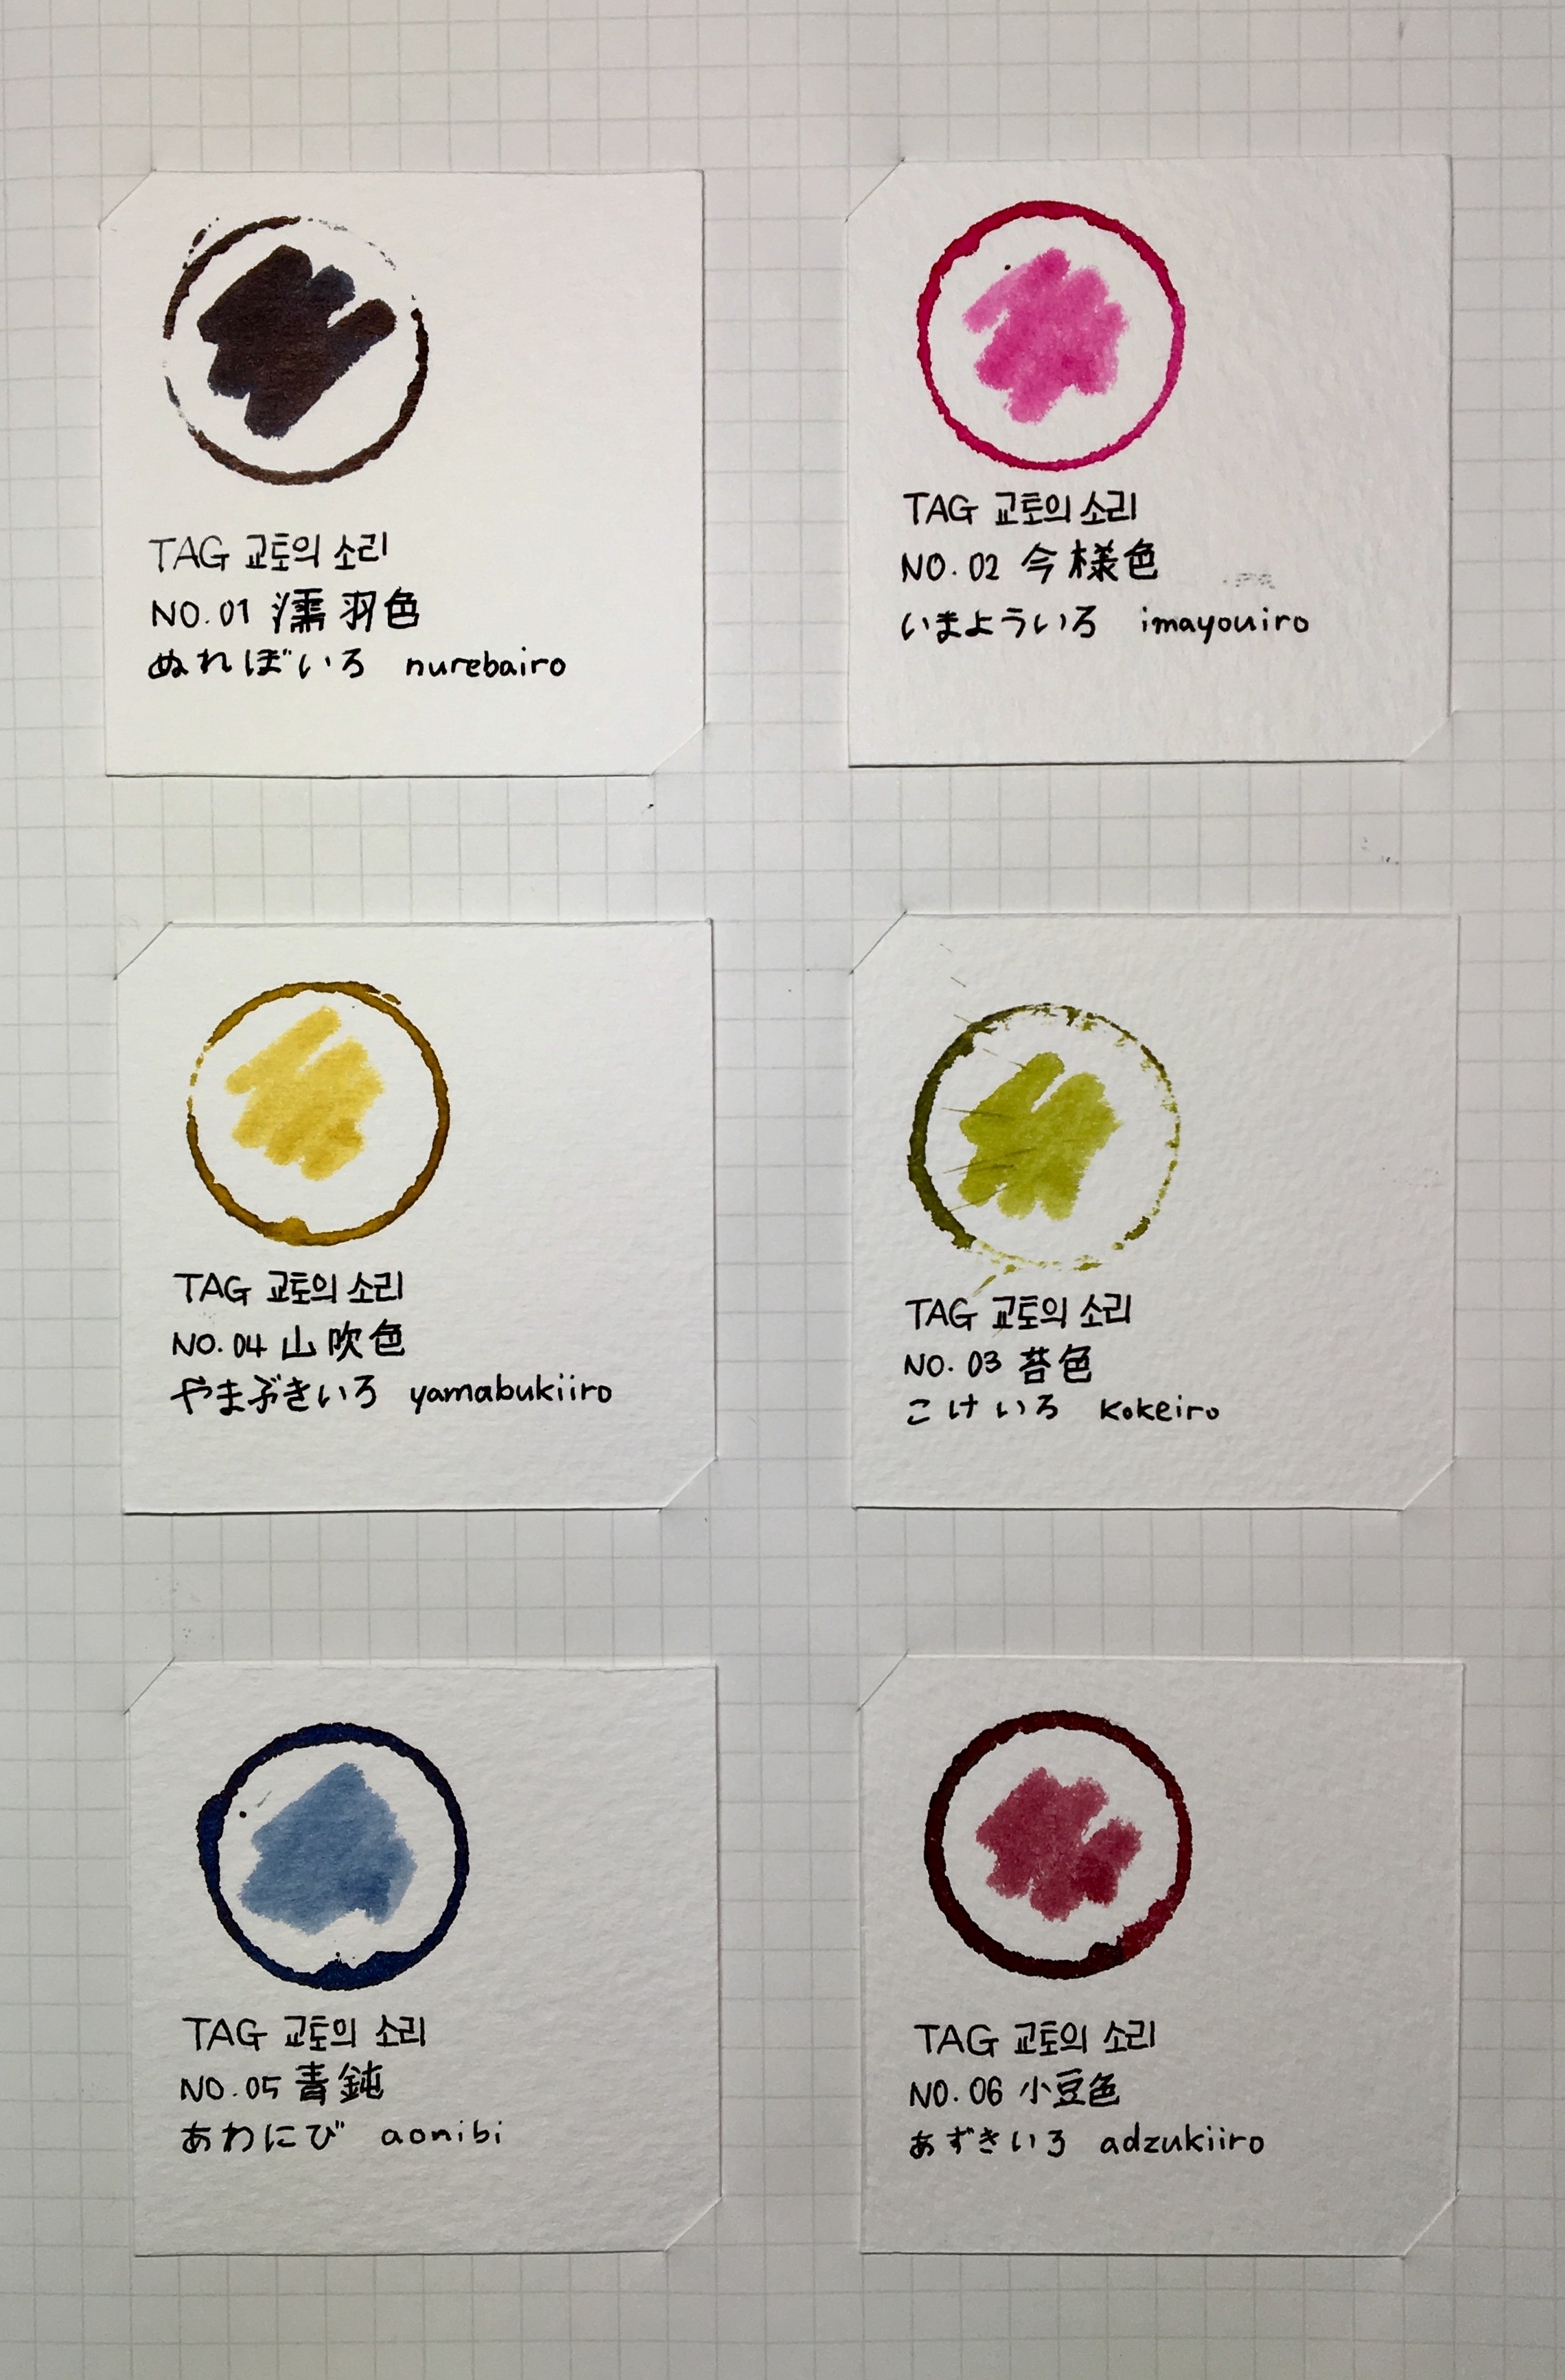 TAG 교토의 소리
NO. 01 濡羽色
ぬればいろ nurebairo
TAG 교토의 소리
NO. 02 今様色
いまよういろ imayouiro
TAG 교토의 소리
NO. 04 山吹色
やまぶきいろ yamabukiiro
TAG 교토의 소리
NO. 03 苔色
こけいろ kokeiro
TAG 교토의 소리
NO. 05 青鈍
あわにび aonibi
TAG 교토의 소리
NO. 06 小豆色
あずきいろ adzukiiro